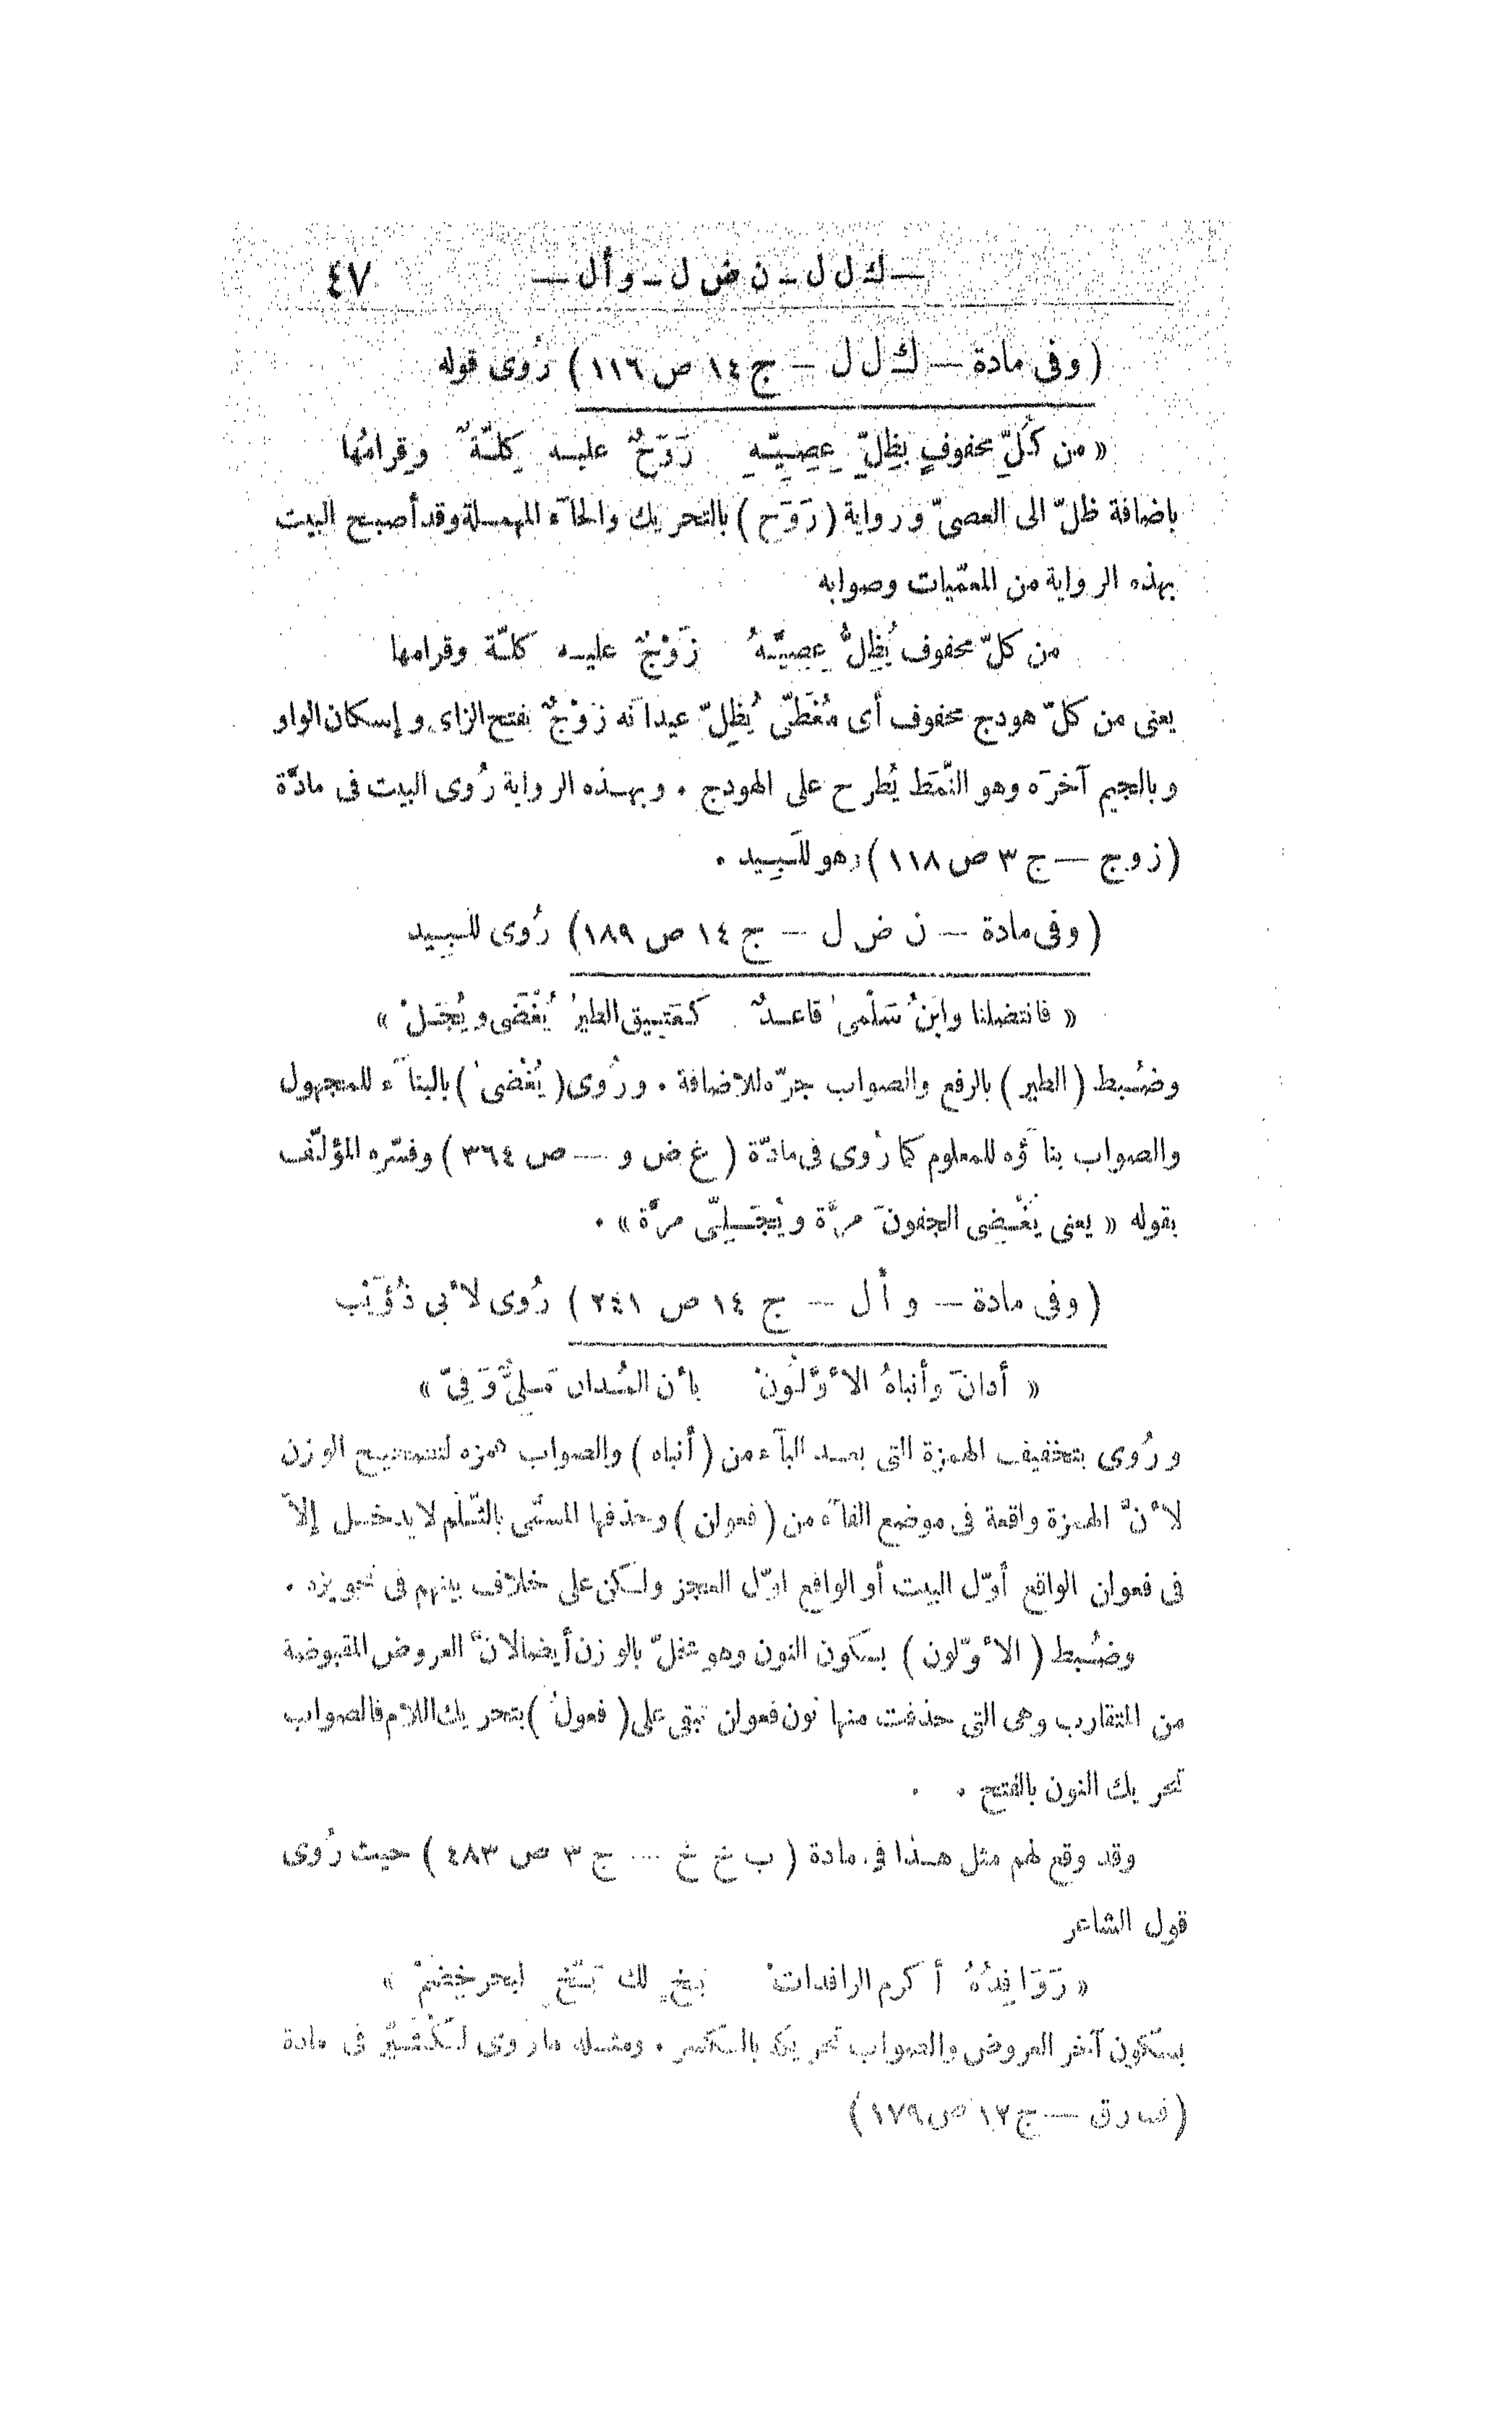 — ك ل ل — ن ض ل — و أ ل — ٤٧
( وفى مادة — ك ل ل — ج ١٤ ص ١١٦ ) رُوى قوله
« من كُلِّ محفوفٍ بظِلِّ عِصِيّـهِ رَوَحٌ عليـه كِلـّةٌ وقِرامُها
باضافة ظلّ الى العصىّ ورواية ( رَوَح ) بالتحريك والحآء المهمـلة وقد أصبح البيت
بهذه الرواية من المعمّيات وصوابه
من كلّ محفوف يُظِلُّ عِصِيَّـهُ زَوْجٌ عليـه كلّـة وقرامها
يعنى من كلّ هودج محفوف أى مُغَطّى يُظِلّ عيدانَه زَوْجٌ بفتح الزاى وإسكان الواو
وبالجيم آخرَه وهو النَّمَط يُطرح على الهودج . وبهـذه الرواية رُوى البيت فى مادّة
( زوج — ج ٣ ص ١١٨ ) وهو للَبِـيد .
( وفى مادة — ن ض ل — ج ١٤ ص ١٨٩ ) رُوى للبِـيد
« فانتضلنا وابنُ سَلْمى قاعـدٌ كعَتِيق الطيرُ يُغْضَى ويُجَـلْ »
وضُبط ( الطير ) بالرفع والصواب جرّه للاضافة . ورُوى ( يُغْضى ) بالبنآء للمجهول
والصواب بناؤه للمعلوم كما رُوى فى مادّة ( غ ض و — ص ٣٦٤ ) وفسّره المؤلّف
بقوله « يعنى يُغْـضِى الجفونَ مرّة ويُجَـلِّى مرّة » .
( وفى مادة — و أ ل — ج ١٤ ص ٢٤١ ) رُوى لأبى ذُؤَيْب
« أدانَ وأنباهُ الأوَّلُونْ بأن المُـدان مَـلِىٌّ وَفِىّ »
ورُوى بتخفيف الهمزة التى بعـد البآء من ( أنباه ) والصواب همزه لتصحيح الوزن
لأنّ الهمزة واقعة فى موضع الفآء من ( فعولن ) وحذفها المسمّى بالثَّلْم لا يدخـل إلاّ
فى فعولن الواقع أوّل البيت أو الواقع اوّل العجز ولكن على خلاف بينهم فى تجويزه .
وضُبط ( الأوّلون ) بسكون النون وهو مخلّ بالوزن أيضا لأنّ العروض المقبوضة
من المتقارب وهى التى حذفت منها نون فعولن تبقى على ( فعولُ ) بتحريك اللام فالصواب
تحريك النون بالفتح .
وقد وقع لهم مثل هـذا فى مادة ( ب خ خ — ج ٣ ص ٤٨٣ ) حيث رُوى
قول الشاعر
« رَوَافِدُهُ أكرم الرافدات بَخٍ لك بَخّ لبحر خِضَمْ »
بسكون آخر العروض والصواب تحريكه بالكسر . ومثـله ما رُوى لكُثَـيِّر فى مادة
( ف ر ق — ج ١٢ ص ١٧٩ )